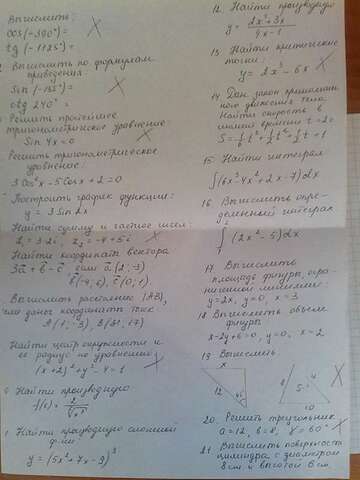 Вычислить:
cos(-390°)=
tg(-1125°)=
Вычислить по формулам
приведения
Sin(-135°)=
ctg 240° =
Решить простейшее
тригонометрическое уравнение:
Sin 4x = 0
Решить тригонометрическое
уравнение:
3 Cos²x - 5 Cosx + 2 = 0
Построить график функции:
y = 3 Sin 2x
Найти сумму и частное чисел:
z₁ = 3-2i, z₂ = -4+5i
Найти координаты вектора
3a + b - c, если a (2; -3)
c (0; 1)
Вычислить расстояние |AB|,
если даны координаты точек
Найти центр окружности и
её радиус по уравнению:
(x+2)² + y² - 4 - 1
Найти производную
f(x) =
Найти производную сложной
ф-ии
y = (5x² + 7x - 9)³
12. Найти производную
y = 2x² + 3x
9x - 1
13 Найти критические
точки:
y = 2x³ - 6x
14 Дан закон прямолиней-
ного движения тела
Найти скорость в
момент времени t = 2c
15 Найти интеграл
∫(6x³ 4x² + 2x - 7)dx
16 Вычислить опре-
деленный интеграл
∫(2x² - 5)dx
17 Вычислить
площадь фигуры, огра-
ниченной линиями:
y = 2x, y = 0, x = 3
18 Вычислить объем
фигуры
x - 2y + 6 = 0, y = 0, x = 2
19 Вычислить:
x
12
45°
8
S
10
20 Решить треугольник
a = 12, b = 8, 60°
21 Вычислить поверхность
цилиндра с диаметром
8 см и высотой 6 см